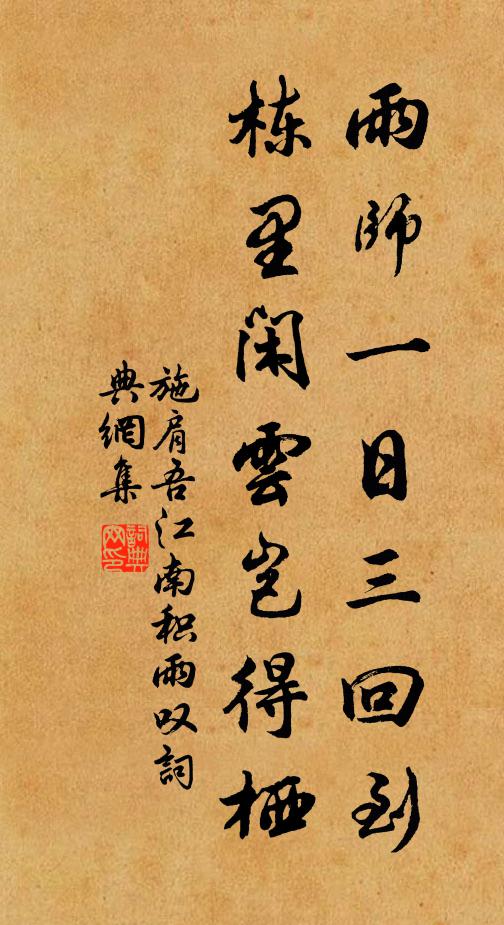 雨師一日三回到
棟里闲雲岂得栖
施肩吾江南积雨叹詞
典網集
詞典网印